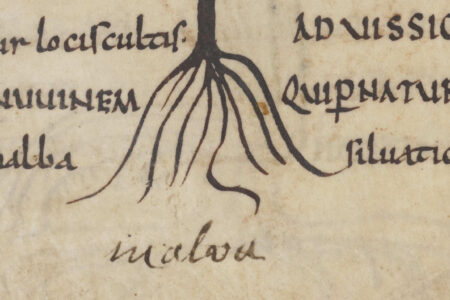 ur lociscultis· ADUISSIC
NUUINEM QUIPNATUR
nalba siluatic
malva